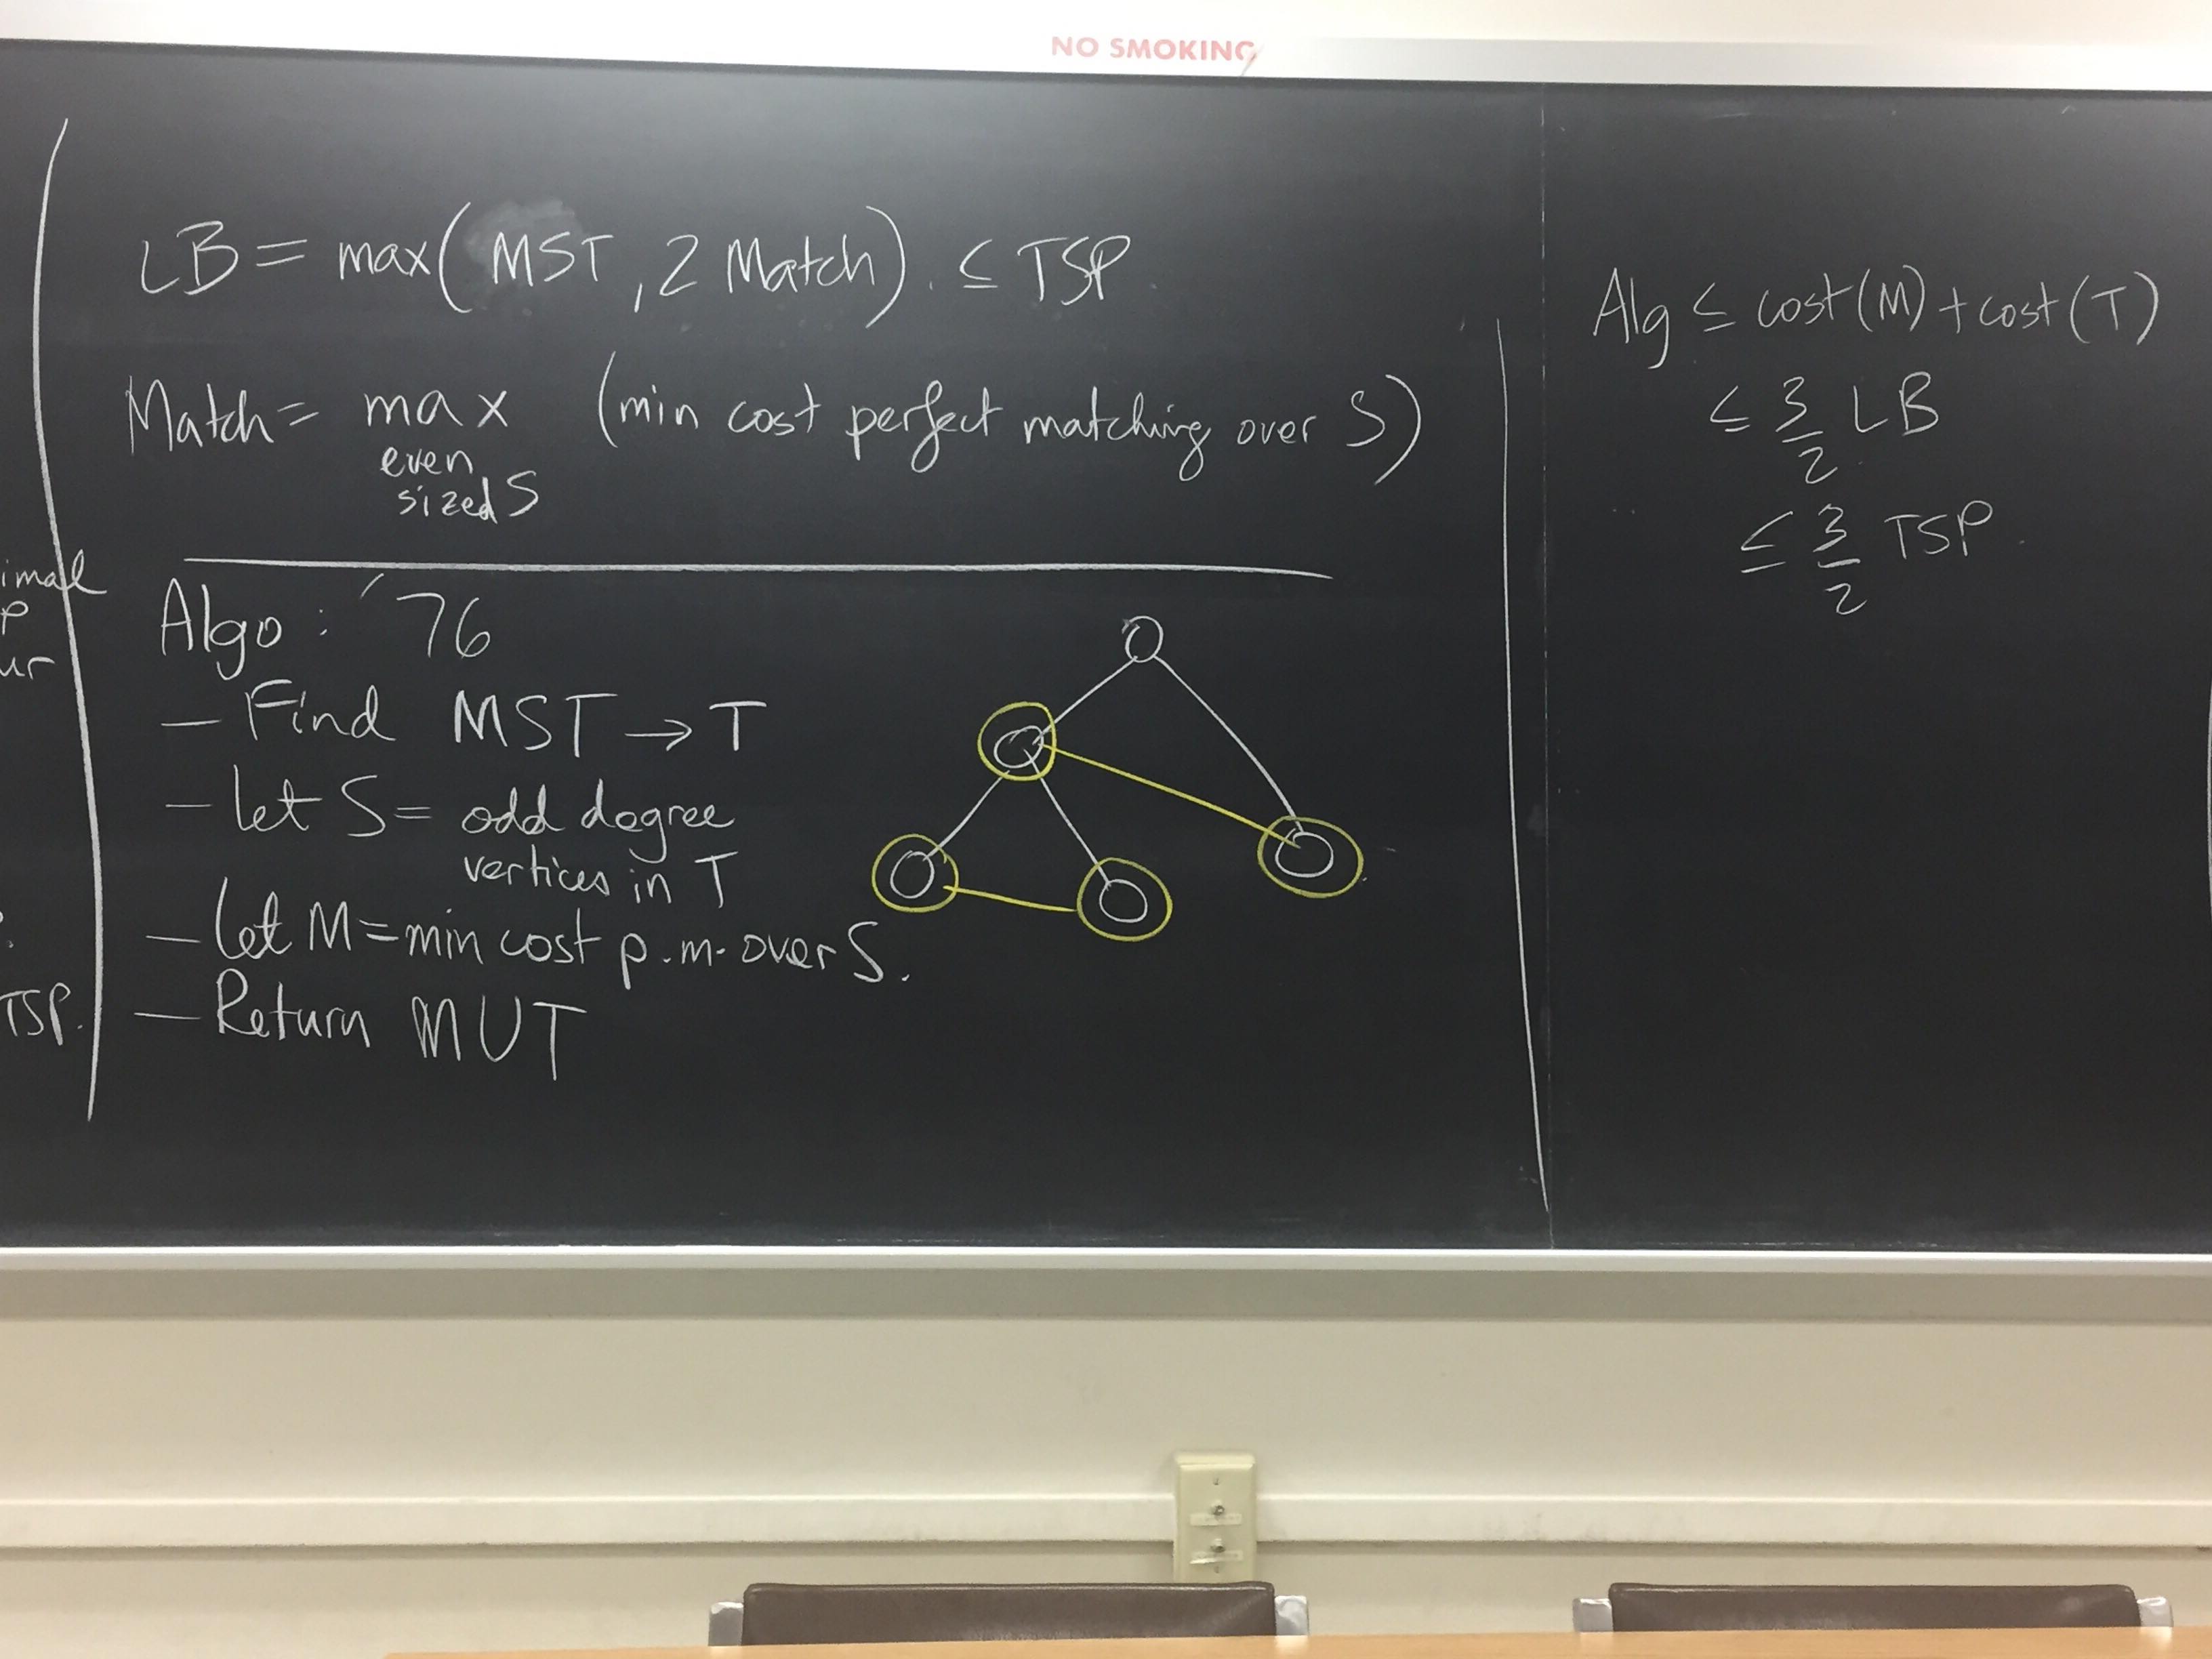 NO SMOKING
LB = max(MST, 2 Match). ≤ TSP.
Match = max (min cost perfect matching over S)
even
sized S
Algo: '76
- Find MST → T
- let S = odd degree
vertices in T
- let M = min cost p.m. over S.
- Return M∪T
Alg ≤ cost(M) + cost(T)
≤ 3/2 LB
≤ 3/2 TSP.
TSP.